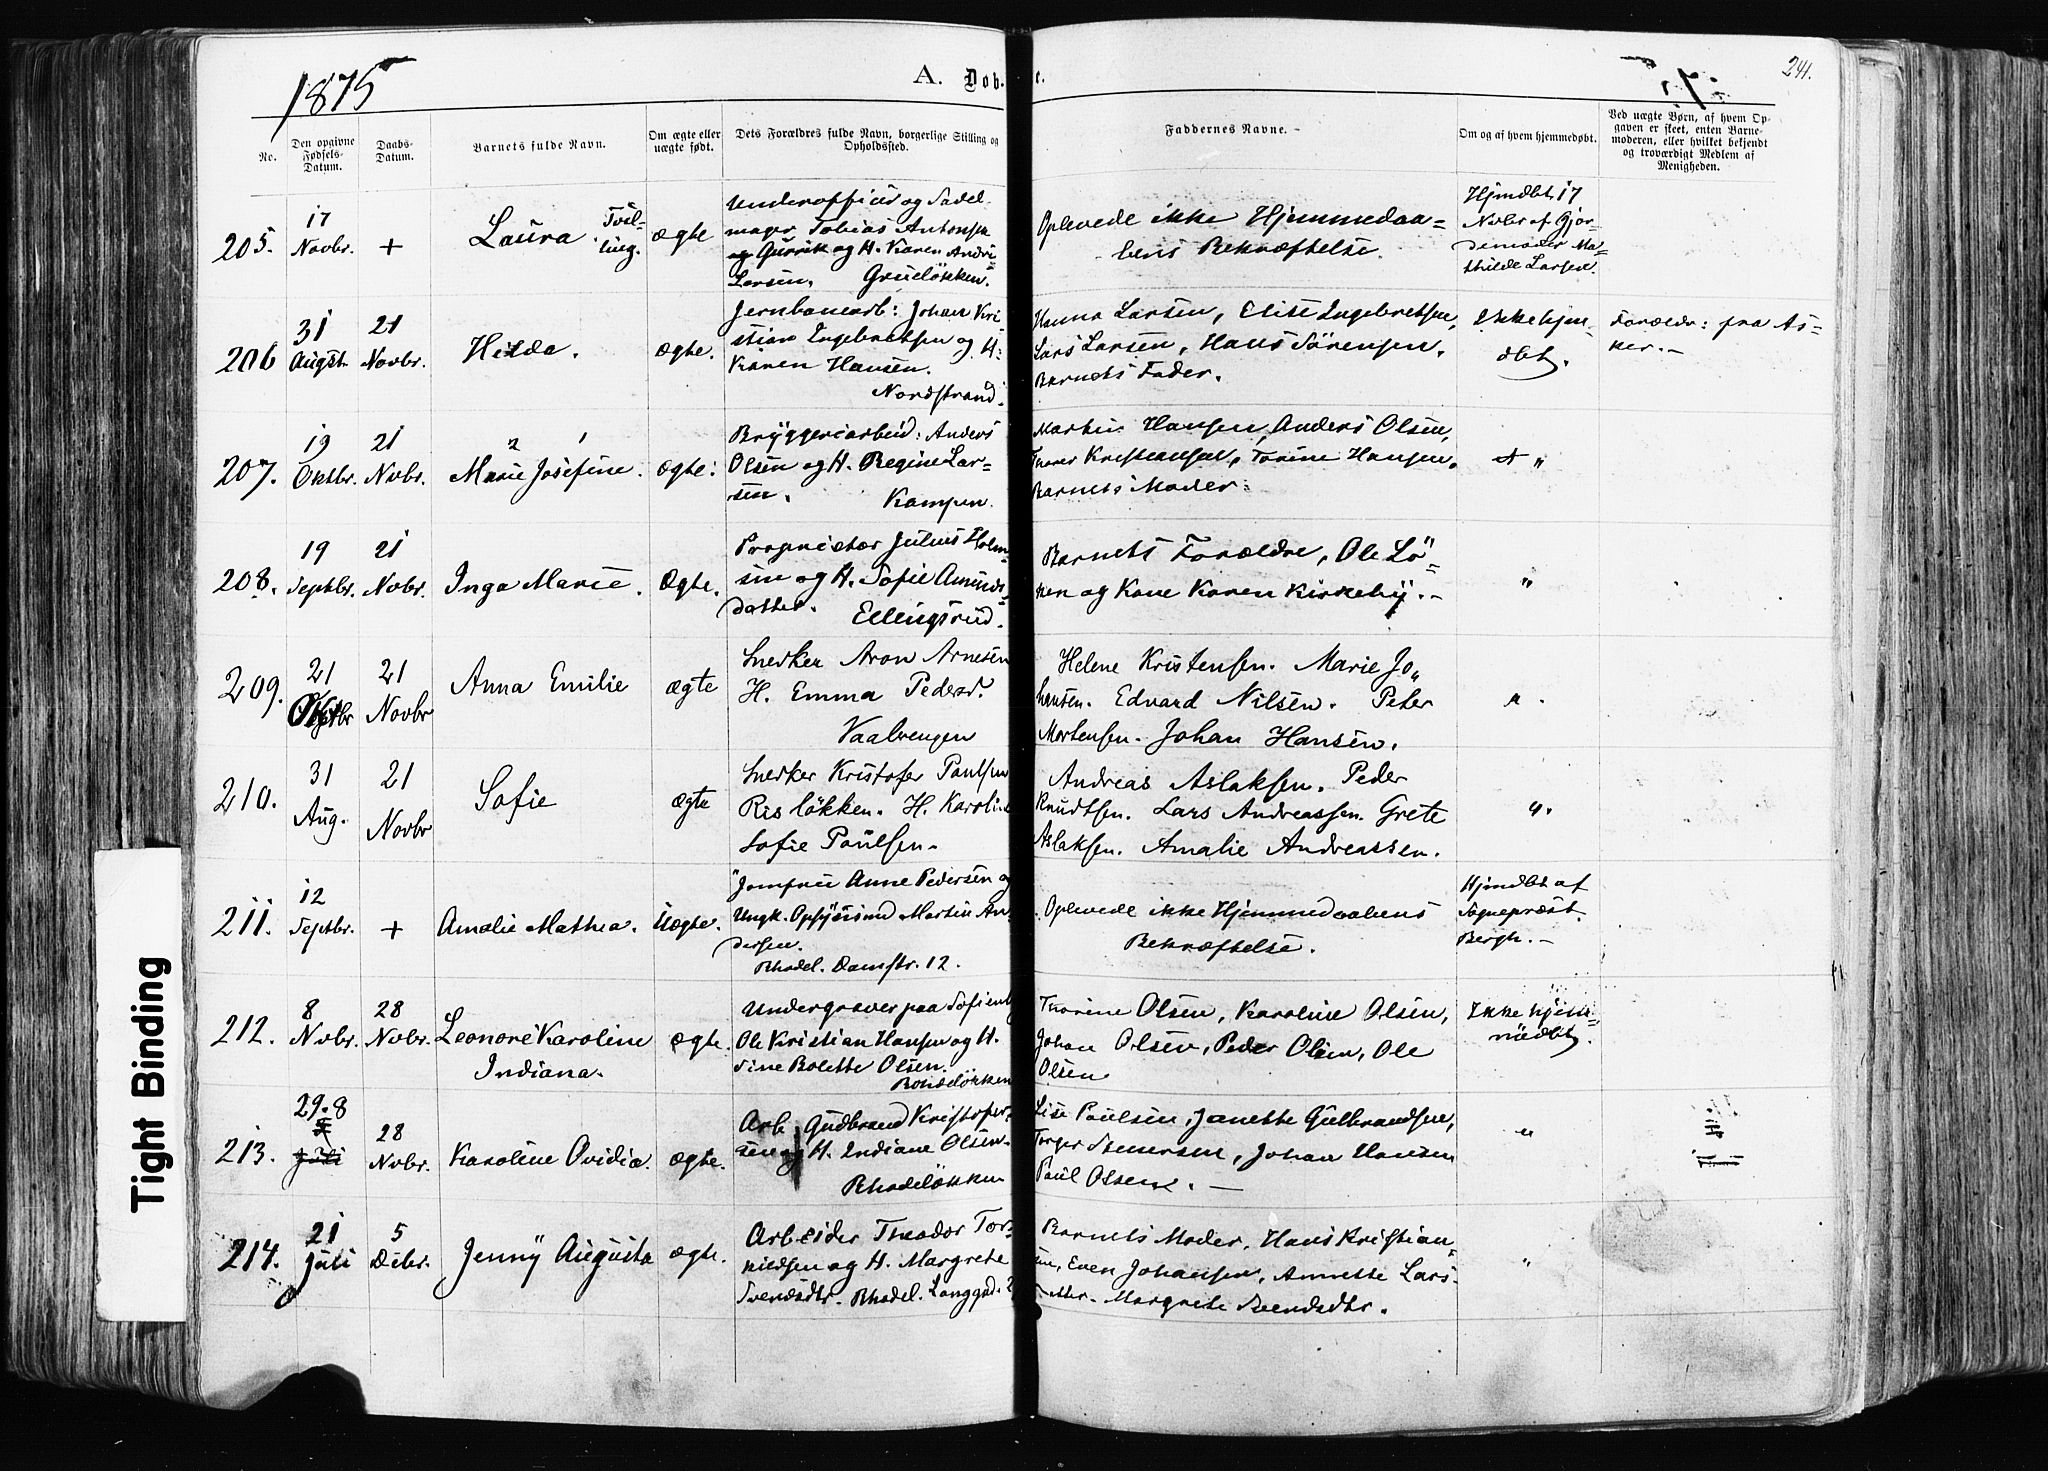 1875
A. Døb-
e.
241.
No.
Den opgivne Fødsels-Datum.
Daabs-Datum.
Barnets fulde Navn.
Om ægte eller uægte født.
Dets Forældres fulde Navn, borgerlige Stilling og Opholdssted.
Faddernes Navne.
Om og af hvem hjemmedøbt.
Ved uægte Børn, af hvem Opgaven er skeet, enten Barnemoderen, eller hvilket bekjendt og troværdigt Medlem af Menigheden.
205.
17
Novbr.
+
Laura
Tvil-
ling.
ægte
Underofficir og Sadel
mager Tobias Antonsen
og H. Karen Andr:
Larsen. Grueløkken.
Oplevede ikke Hjemmedaa=
bens Bekræftelse.
Hjmdbt 17
Novbr af Gjor-
demoder Ma=
thilde Larsen.
206
31
Augst.
21
Novbr.
Hilda.
ægte.
Jernbanearb: Johan Kri
stian Ingebretsen og H:
Karen Hansen.
Nordstrand.
Hanna Larsen, Elise Ingebretsen,
Lars Larsen, Hans Sörensen.
Barnets Fader.
Ikke hjem
dbt.
Foreldr: fra As=
ker.-
207.
19
Oktbr.
21
Nvbr.
2 1
Marie Josefine.
ægte:
Bryggeriarbeid: Anders
Olsen og H. Regine Lar=
sen.
Kampen.
Martin Hansen, Anders Olsen,
Thorer Kristiansen, Torine Hansen.
Barnets Moder.
"
208.
19
Septbr.
21
Novbr.
Inga Marie.
Ægte.
Proprietær Julius Holm
sen og H. Sofie Amunds=
datter.
Ellingsrud.
Barnets Forældre, Ole Lö=
ken og Kone Karen Kirkeby.-
"
209.
21
Oktbr
21
Novbr
Anna Emilie
ægte
Snedker Aron Arnesen
H. Emma Pedersd.
Vaalrengen
Helene Kristensen. Marie Jo„
hansen. Edvard Nilsen. Peter
Mortensen. Johan Hansen.
" .
210.
31
Aug.
21
Novbr
Sofie
ægte
Snedker Kristofer Paulsen
Risløkken. H. Karoline
Sofie Paulsen.
Andreas Aslaksen. Peder
Knudtsen. Lars Andreassen. Grete
Aslaksen. Amalie Andreassen.
".
211.
12
Septbr.
+
Amalie Mathea.
Uægte.
"Jomfru Anne Pedersen og
Ungk. Opsynsmd Martin An
dersen.
Rhodel. Damstr. 12.
Oplevede ikke Hjemmedaabens
Bekræftelse.
Hjmdbt af
Sogneprest
Bergh.-
212.
8
Nvbr.
28
Nvbr.
Leonore Karoline
Indiana.
ægte.
Undergraver paa Sofienb
Ole Kristian Hansen og H.
Sine Bolette Olsen.
Thorine Olsen, Karoline Olsen,
Johan Olsen, Peder Olsen, Ole
Olsen
Ikke hjem=
medbt.
213.
29.8
Juli
28
Nvbr.
Karoline Ovidia.
ægte.
Arb Gudbrand Kristofer
sen og H. Indiane Olsen.
Rhodeløkken
Lise Paulsen, Janette Gulbrandsen,
Torger Stenersen, Johan Hansen
Paul Olsen. —
"
214.
21
Juli
5
Debr.
Jenny Augusta
ægte.
Arbeider Theodor Tor=
kildsen og H. Margrete
Svendsdtr. Rhodel. Langgad.
Barnets Moder, Hans Kristian=
sen, Even Johansen, Annette Lars
datter. Margrete Svendsdtr.
"
Tight Binding